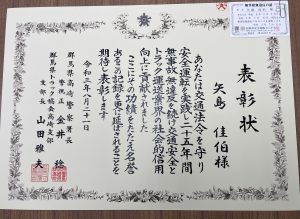 表彰状
矢島 佳伯様
あなたは交通法令を守り
安全運転を実践し二十五年間
無事故無違反を続け交通安全と
トラック運送業界の社会的信用
向上に貢献されました
ここにその功績をたたえ名誉
あるこの記録を更に延ばされることを
期待し表彰します
令和三年 月二十一日
群馬県高崎警察署長
警視正 金井
群馬県トラック協会高崎支部
支部長 山田 雅夫